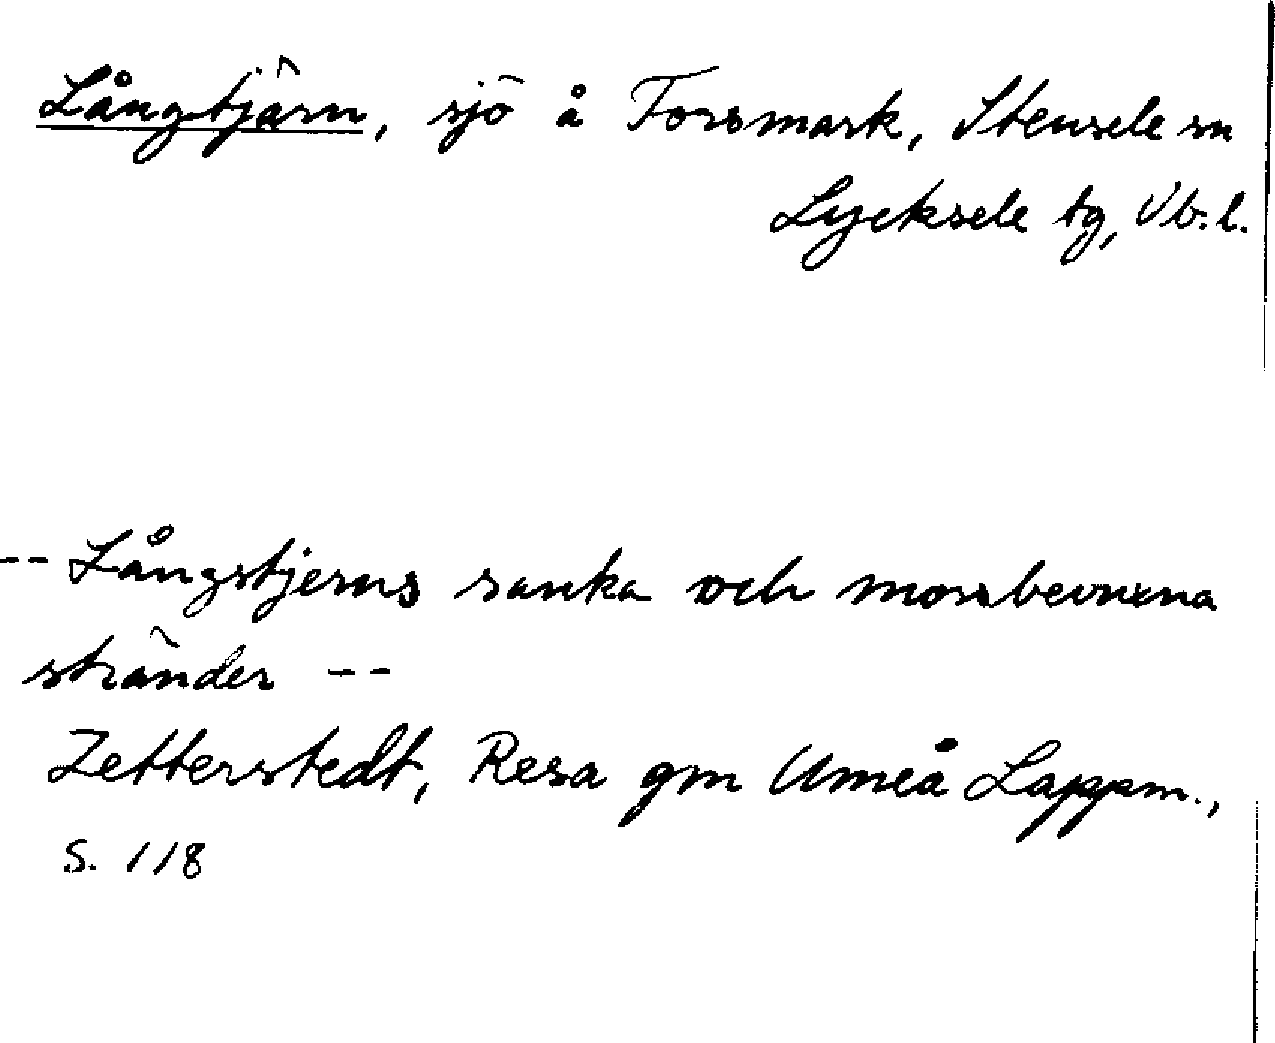 Långtjärn, sjö å Forsmark, Stensele sn
Lycksele tg, Vb. l.
-- Långstjerns sanka och mossbevuxna
stränder --
Zetterstedt, Resa gm Umeå Lappm.,
S. 118